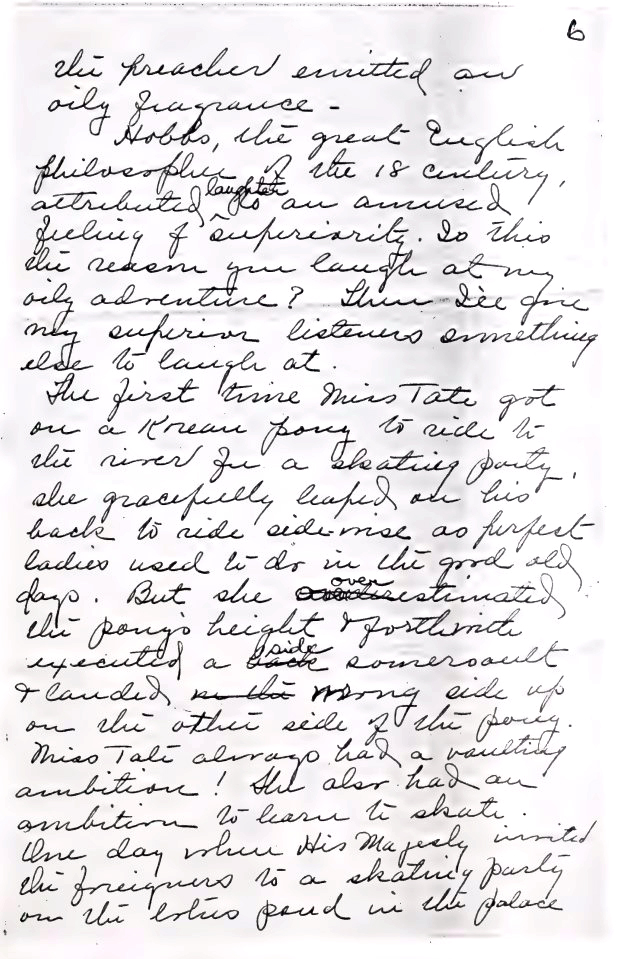 6
the preacher emitted an
oily fragrance -
Hobbs, the great English
philosopher of the 18 century,
attributed laughter to an amused
feeling of superiority. Is this
the reason you laugh at my
oily adventure? Then I'll give
my superior listeners something
else to laugh at.
The first time Miss Tate got
on a Korean pony to ride to
the river for a skating party,
she gracefully leaped on his
back to ride side-wise as perfect
ladies used to do in the good old
days. But she overestimated
the pony's height & forthwith
executed a side somersault
& landed in the wrong side up
on the other side of the pony.
Miss Tate always had a vaulting
ambition! She also had an
ambition to learn to skate.
One day when His Majesty invited
the foreigners to a skating party
on the lotus pond in the palace